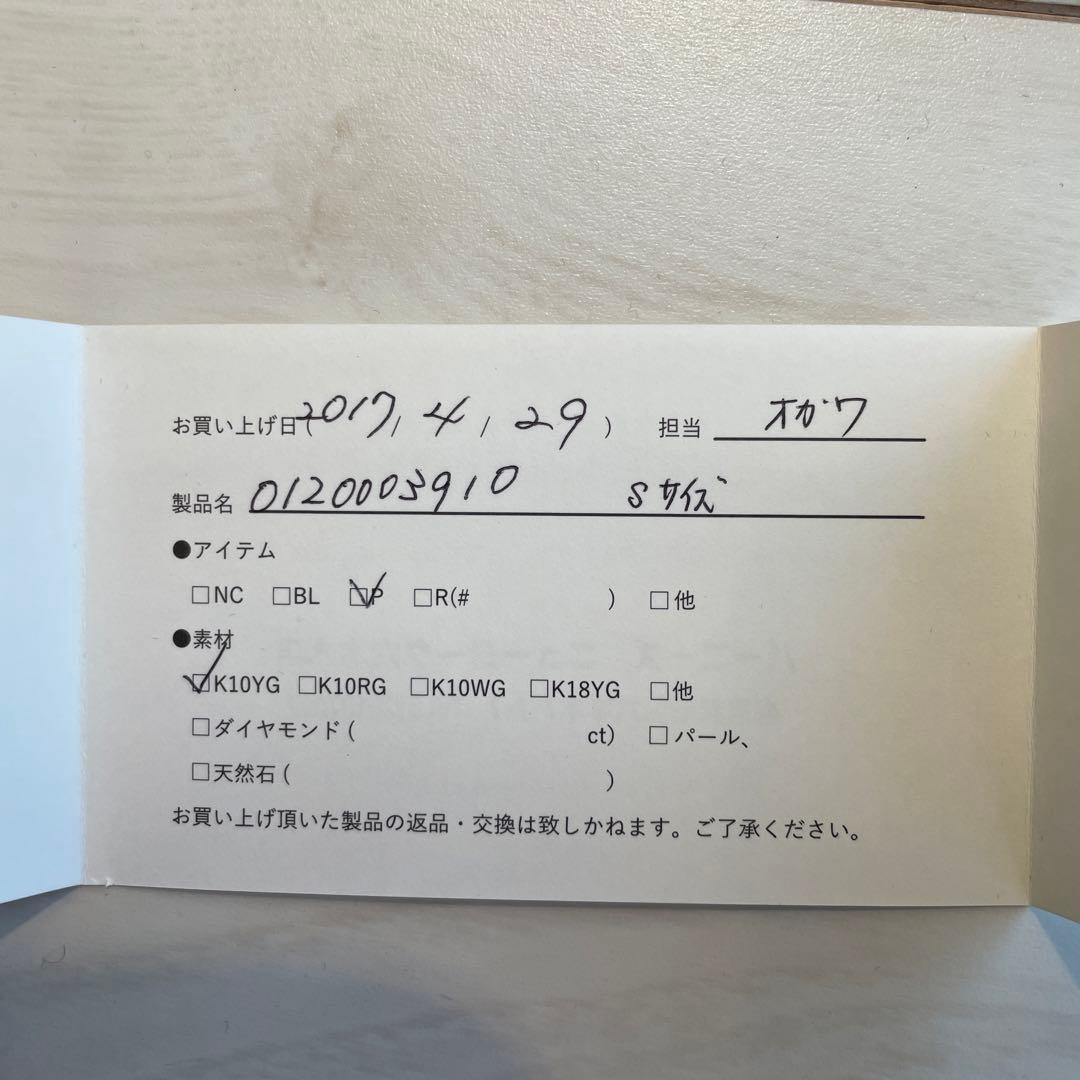 お買い上げ日(2017/ 4 / 29 ) 担当 オガワ
製品名 0120003910 Sサイズ
●アイテム
□NC □BL ☑P □R(# ) □他
●素材
☑K10YG □K10RG □K10WG □K18YG □他
□ダイヤモンド( ct) □パール、
□天然石( )
お買い上げ頂いた製品の返品・交換は致しかねます。ご了承ください。